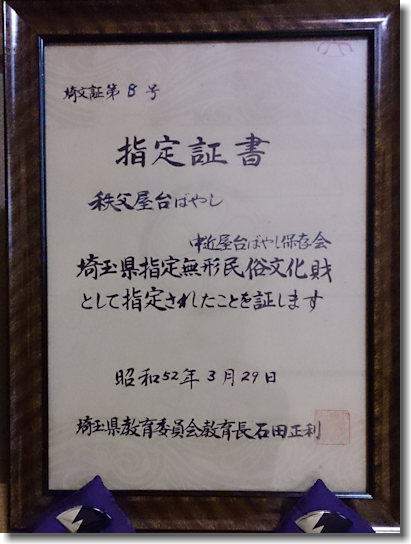 埼文証第8号
指定証書
秩父屋台ばやし
中近屋台ばやし保存会
埼玉県指定無形民俗文化財
として指定されたことを証します
昭和52年3月29日
埼玉県教育委員会教育長石田正利